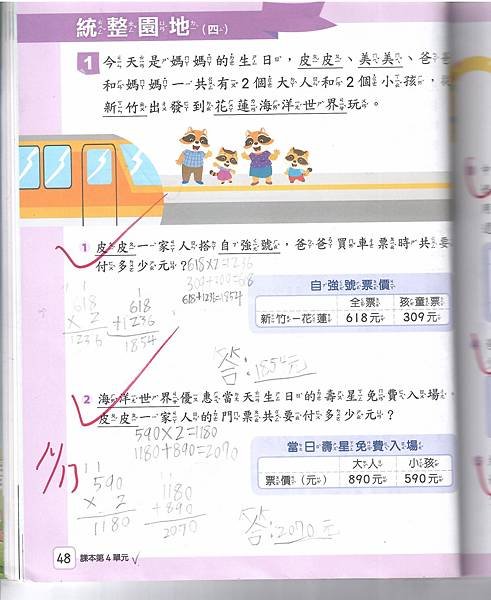 統整園地(四)
1 今天是媽媽的生日，皮皮、美美、爸爸
和媽媽一共有2個大人和2個小孩，從
新竹出發到花蓮海洋世界玩。
1 皮皮一家人搭自強號，爸爸買車票時共要
付多少元？
618×2=1236
309+309=618
618+1236=1854
618
× 2
1236
1
618
+1236
1854
自強號票價
全票 孩童票
新竹—花蓮 618元 309元
答:1854元
2 海洋世界優惠當天生日的壽星免費入場，
皮皮一家人的門票共要付多少元？
590×2=1180
1180+890=2070
11/17
1
590
× 2
1180
1
1180
+890
2070
當日壽星免費入場
大人 小孩
票價(元) 890元 590元
答:2070元
48 課本第4單元